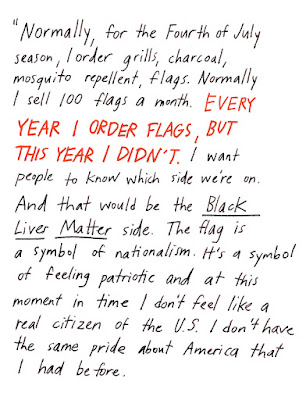 "Normally, for the Fourth of July
season, I order grills, charcoal,
mosquito repellent, flags. Normally
I sell 100 flags a month. EVERY
YEAR I ORDER FLAGS, BUT
THIS YEAR I DIDN'T. I want
people to know which side we're on.
And that would be the Black
Lives Matter side. The flag is
a symbol of nationalism. It's a symbol
of feeling patriotic and at this
moment in time I don't feel like a
real citizen of the U.S. I don't have
the same pride about America that
I had before.